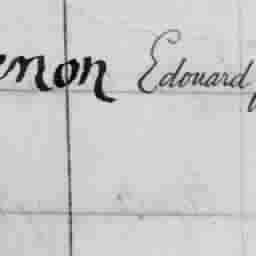 enon Edouard